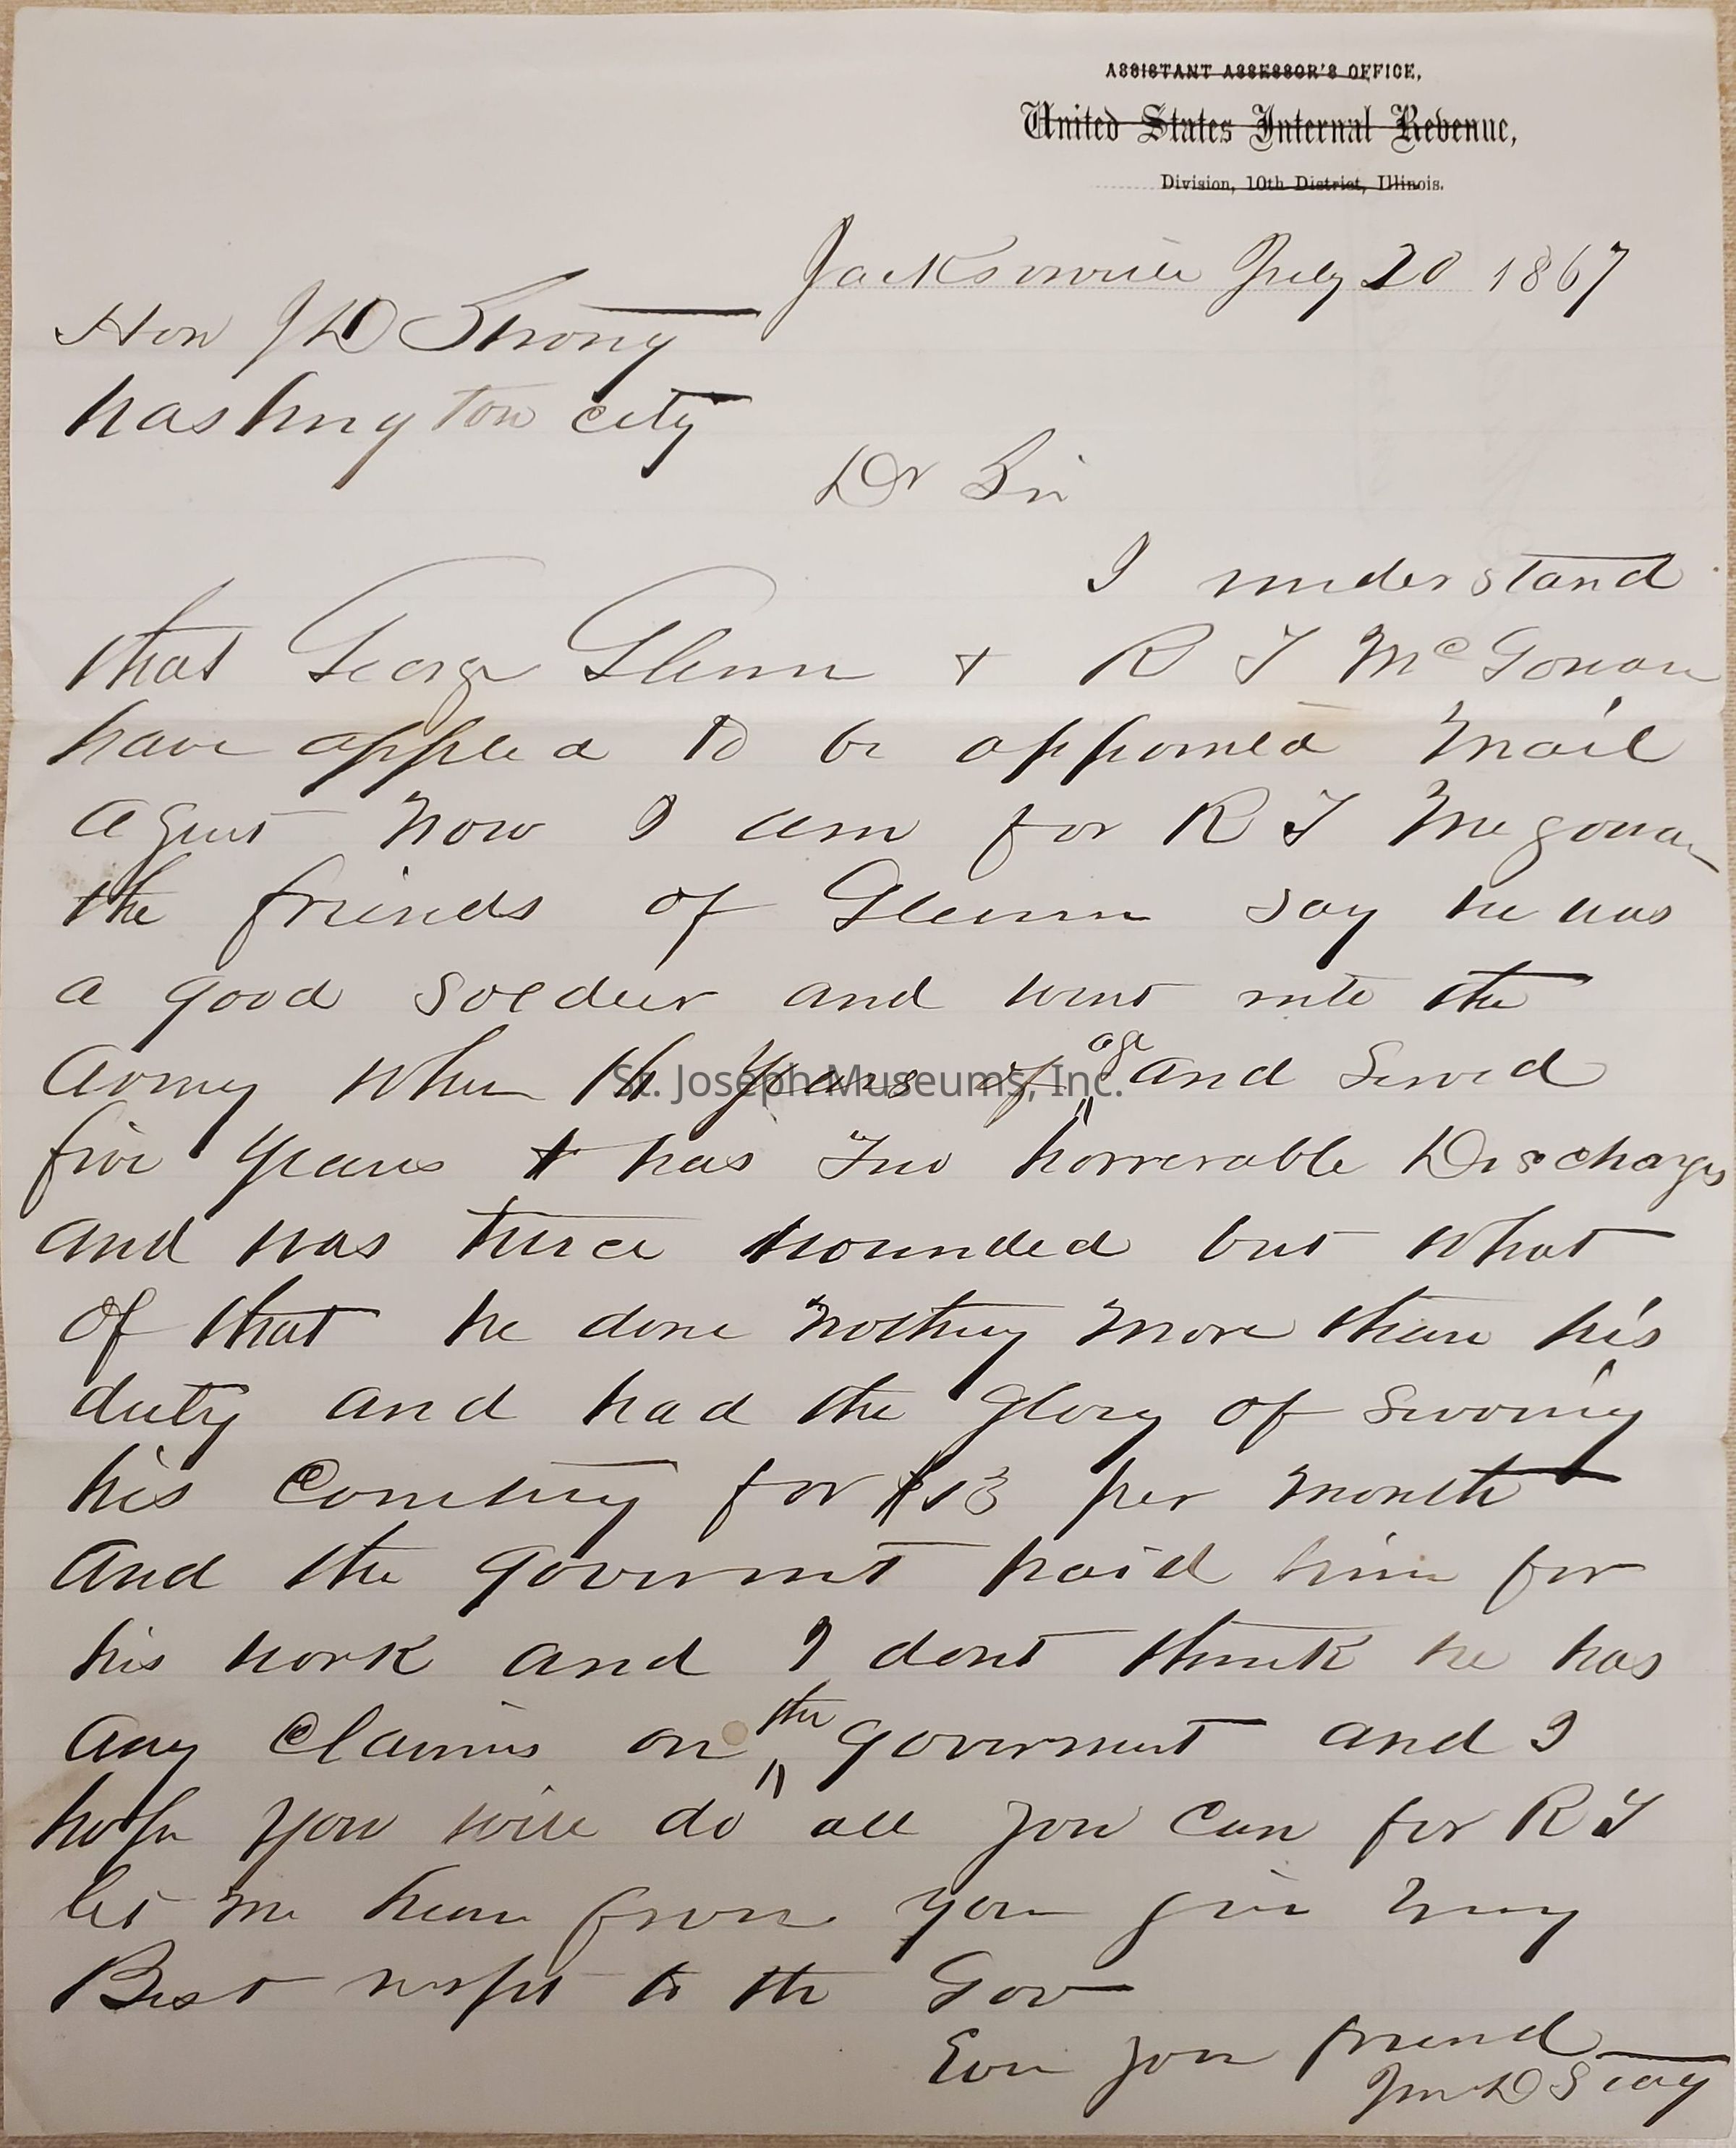 ASSISTANT ASSESSOR'S OFFICE,
United States Internal Revenue,
Division, 10th District, Illinois.
Jacksonville July 20 1867
Hon J D Strong
Washington city
Dr Sir
I understand
that George Glenn + R T McGowan
have applied to be appointed Mail
agent Now I am for R T Megowan
the friends of Glenn say he was
a good soldier and went into the
army when 14 years of age and served
five years + has Two honerable Discharges
and was twice wounded but what
of that he done nothing more than his
duty and had the glory of
his Country for $13 per month
and the goverment paid him for
his work and I dont think he has
any claims on the goverment and I
hope you will do all you can for R T
let me hear from you give my
Best respt to the Gov
Ever your friend
St. Joseph Museums, Inc.